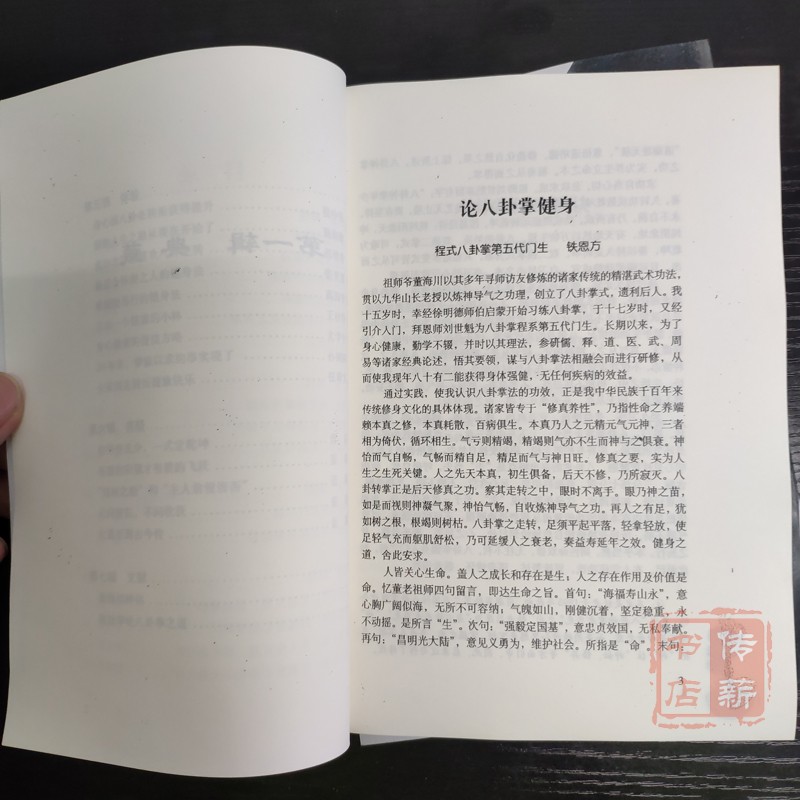 论八卦掌健身
程式八卦掌第五代门生 铁恩方
祖师爷董海川以其多年寻师访友修炼的诸家传统的精湛武术功法，
贯以九华山长老授以炼神导气之功理，创立了八卦掌式，遗利后人。我
十五岁时，幸经徐明德师伯启蒙开始习练八卦掌，于十七岁时，又经
引介入门，拜恩师刘世魁为八卦掌程系第五代门生。长期以来，为了
身心健康，勤学不辍，并时以其理法，参研儒、释、道、医、武、周
易等诸家经典论述，悟其要领，谋与八卦掌法相融会而进行研修，从
而使我现年八十有二能获得身体强健，无任何疾病的效益。
通过实践，使我认识八卦掌法的功效，正是我中华民族千百年来
传统修身文化的具体体现。诸家皆专于“修真养性”，乃指性命之养端
赖本真之修，本真耗散，百病俱生。本真乃人之元精元气元神，三者
相为倚伏，循环相生。气亏则精竭，精竭则气亦不生而神与之俱衰。神
怡而气自畅，气畅而精自足，精足而气与神日旺。修真之要，实为人
生之生死关键。人之先天本真，初生俱备，后天不修，乃所寂灭。八
卦转掌正是后天修真之功。察其走转之中，眼时不离手。眼乃神之苗，
如是而视则神凝气聚，神怡气畅，自收炼神导气之功。再人之有足，犹
如树之根，根竭则树枯。八卦掌之走转，足须平起平落，轻拿轻放，使
足轻气充而躯肌舒松，乃可延缓人之衰老，奏益寿延年之效。健身之
道，舍此安求。
人皆关心生命。盖人之成长和存在是生；人之存在作用及价值是
命。忆董老祖师四句留言，即达生命之旨。首句：“海福寿山水”，意
心胸广阔似海，无所不可容纳；气魄如山，刚健沉着，坚定稳重，永
不动摇。是所言“生”。次句：“强毅定国基”，意忠贞效国，无私奉献。
再句：“昌明光大陆”，意见义勇为，维护社会。所指是“命”。末句：
3
传薪
书店